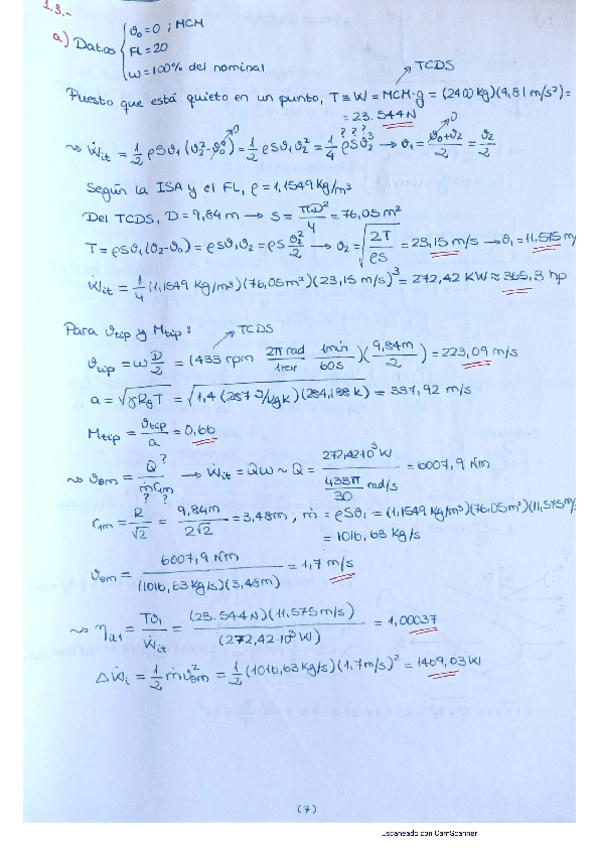 1.3.-
a) Datos { v₀ = 0 ; MCM
FL = 20
ω = 100% del nominal
→ TCDS
Puesto que está quieto en un punto, T ≡ W = MCM·g = (2400 kg)(9,81 m/s²) =
= 23.544 N
⇝ Ẇit = 1/2 ρSv₁(v₂² - v₀²)⁰ = 1/2 ρSv₁v₂² = 1/4 ρSv₂³ → v₁ = (v₀ + v₂)/2 = v₂/2
? ? ?
Según la ISA y el FL, ρ = 1,1549 kg/m³
Del TCDS, D = 9,84 m → S = πD²/4 = 76,05 m²
T = ρSv₁(v₂ - v₀) = ρSv₁v₂ = ρS v₂²/2 → v₂ = √(2T/ρS) = 23,15 m/s → v₁ = 11,575 m/
Ẇit = 1/4 (1,1549 kg/m³)(76,05 m²)(23,15 m/s)³ = 272,42 kW ≈ 365,3 hp
Para vtip y Mtip :
→ TCDS
vtip = ω D/2 = (433 rpm 2π rad/1 rev 1 min/60 s)(9,84 m/2) = 223,09 m/s
a = √(γRgT) = √(1,4 (287 J/kgK)(284,188 K)) = 337,92 m/s
Mtip = vtip/a = 0,66
⇝ vθm = Q?/(ṁ? r₁m?) → Ẇit = Qω ~ Q = 272,42·10³ W/(433π/30 rad/s) = 6007,9 Nm
r₁m = R/√2 = 9,84 m/2√2 = 3,48 m ; ṁ = ρSv₁ = (1,1549 kg/m³)(76,05 m²)(11,575 m/
= 1016,63 kg/s
vθm = 6007,9 Nm/(1016,63 kg/s)(3,48 m) = 1,7 m/s
⇝ ηit1 = Tv₁/Ẇit = (23.544 N)(11,575 m/s)/(272,42·10³ W) = 1,00037
ΔẆi = 1/2 ṁvθm² = 1/2 (1016,63 kg/s)(1,7 m/s)² = 1469,03 W
(7)
Escaneado con CamScanner